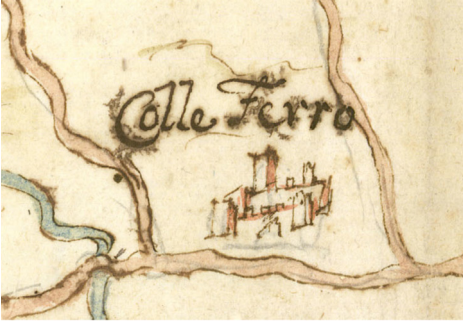 Colle Ferro